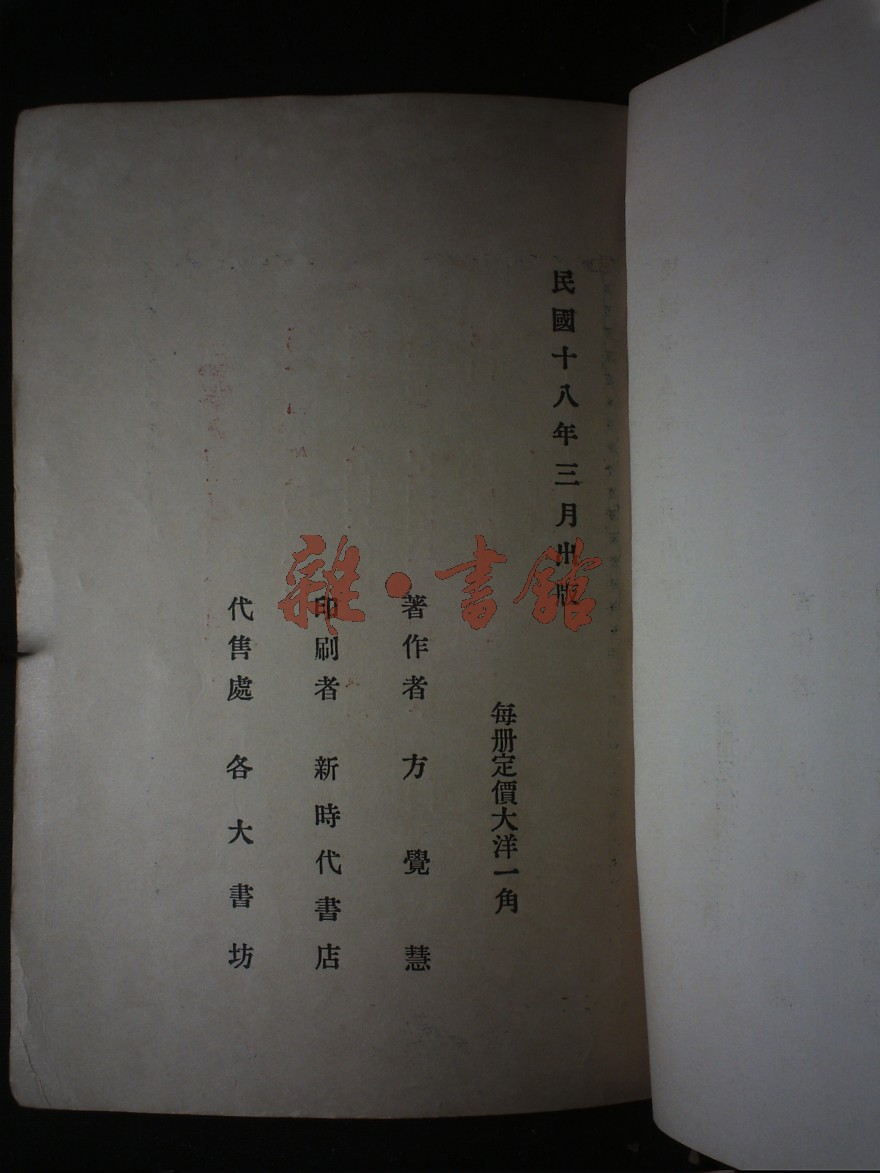 民國十八年三月出版
每册定價大洋一角
著作者 方覺慧
印刷者 新時代書店
代售處 各大書坊
雜·書館